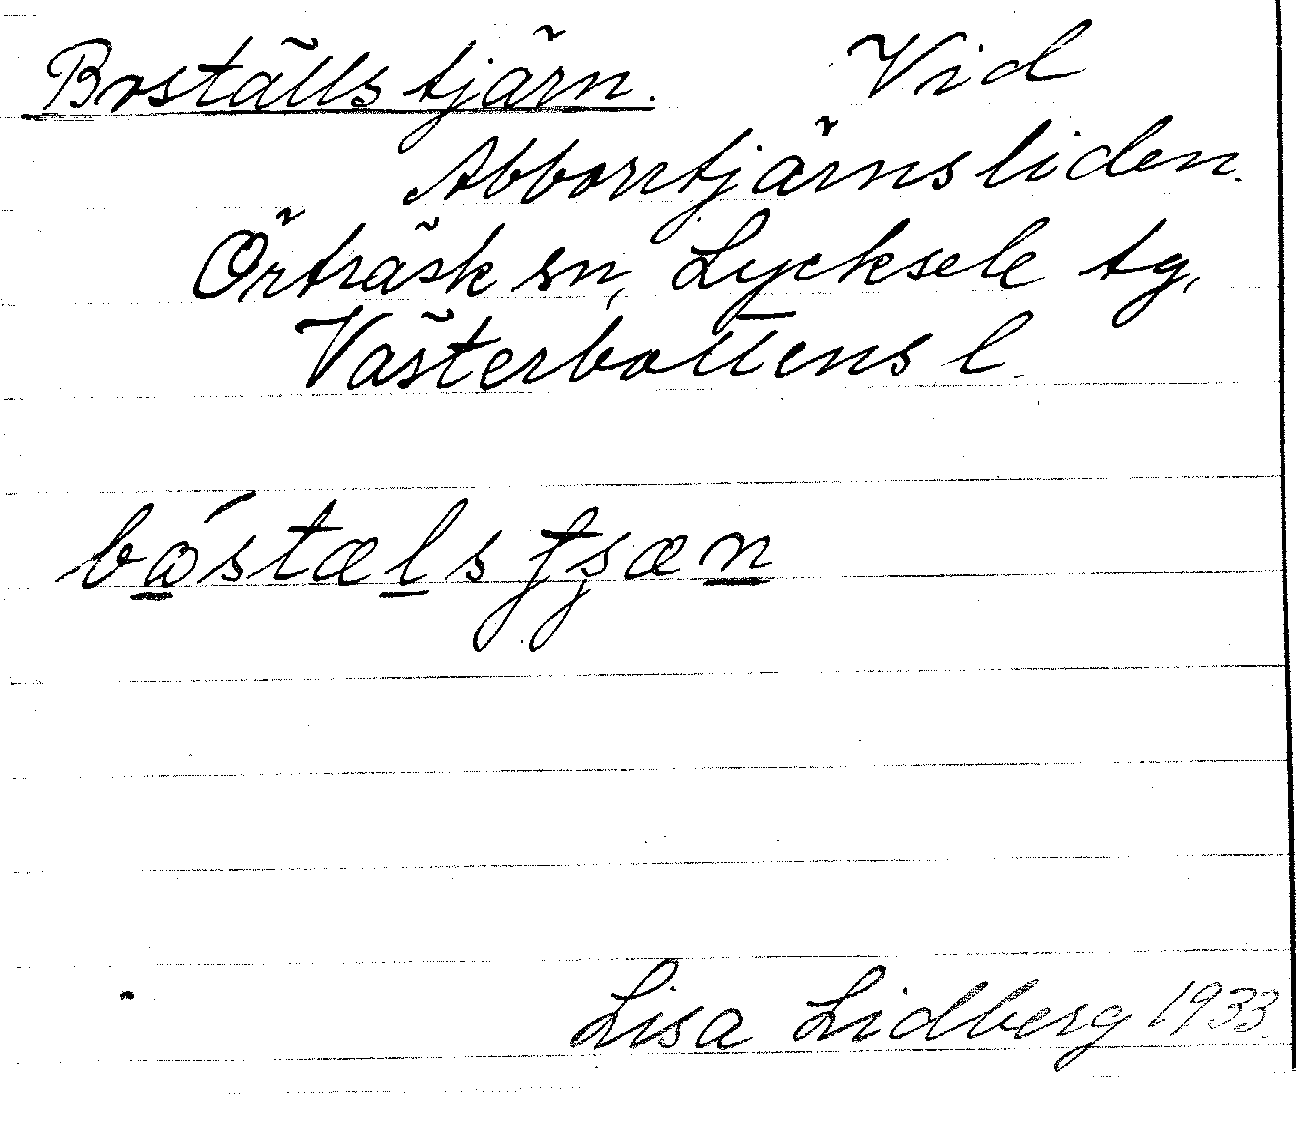 Boställstjärn. Vid
Abborrtjärnsliden.
Örträsk sn, Lycksele tg,
Västerbottens l.
bωstælstʂæn
Lisa Lidberg 1933.